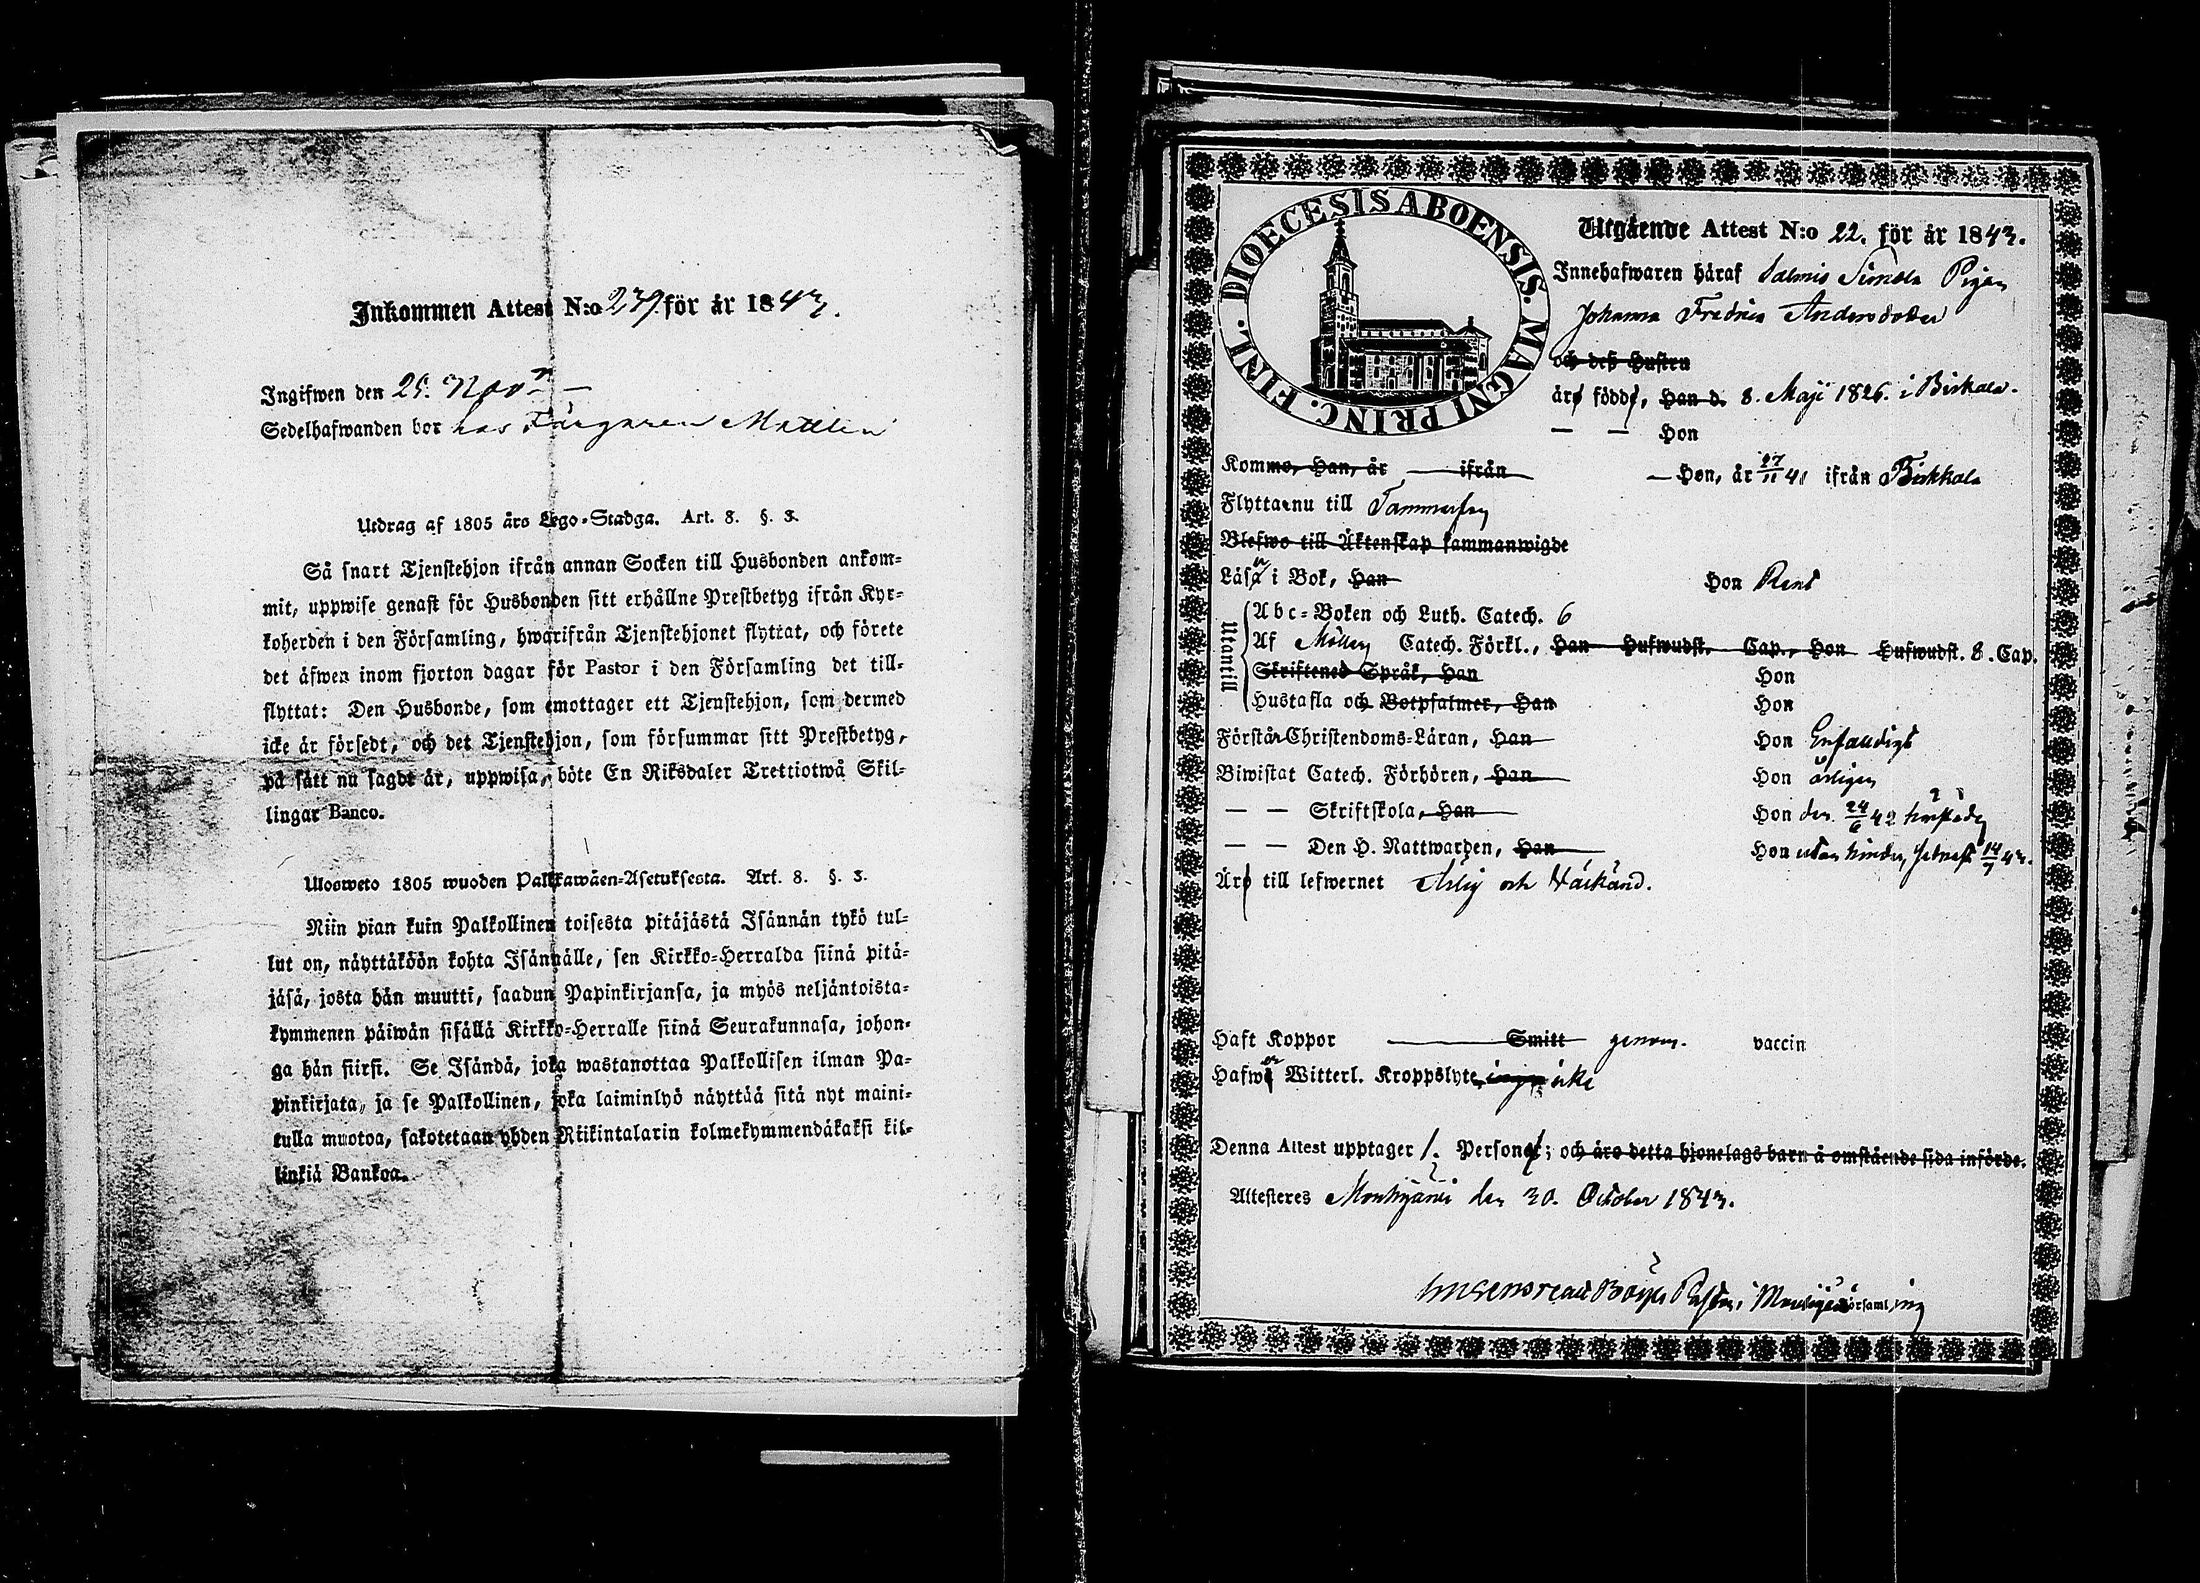 Inkommen Attest N:o 239 för år 1843.
Ingifwen den 25. Nov:r
Sedelhafwanden bor hos Färgaren Mattlin
Utdrag af 1805 års Lego-Stadga. Art. 8. §. 3.
Så snart Tjenstehjon ifrån annan Socken till Husbonden ankom-
mit, uppwise genast för Husbonden sitt erhållne Prestbetyg ifrån Kyr-
koherden i den Församling, hwarifrån Tjenstehjonet flyttat, och förete
det äfwen inom fjorton dagar för Pastor i den Församling det till-
flyttat: Den Husbonde, som emottager ett Tjenstehjon, som dermed
icke är försedt, och det Tjenstehjon, som försummar sitt Prestbetyg,
på sätt nu sagdt är, uppwisa, böte En Riksdaler Trettiotwå Skil-
lingar Banco.
Ulosweto 1805 wuoden Palkkawäen-Asetuksesta. Art. 8. §. 3.
Niin pian kuin Palkollinen toisesta pitäjästä Isännän tykö tul-
lut on, näyttäköön kohta Isännälle, sen Kirkko-Herralda siinä pitä-
jäsä, josta hän muutti, saadun Papinkirjansa, ja myös neljäntoista-
kymmenen päiwän sisällä Kirkko-Herralle siinä Seurakunnasa, johon-
ga hän siirsi. Se Isändä, joka wastanottaa Palkollisen ilman Pa-
pinkirjata, ja se Palkollinen, joka laiminlyö näyttää sitä nyt maini-
tulla muotoa, sakotetaan yhden Riikintalarin kolmekymmendäkaksi kil-
linkiä Bankoa.
DIOECESIS ABOENSIS. MAGNI PRINC. FINL.
Utgående Attest N:o 22. för år 1843.
Innehafwaren häraf Salmis Simola Pigan
Johanna Fredrica Andersdotter
och deß Hustru
äro födde, Han d. 8. Maji 1826. i Birkala.
— — Hon
Kommo, Han, år — ifrån — Hon, år 27/11 41 ifrån Birkkala
Flytta nu till Tammerfors
Blefwo till Äktenskap sammanwigde
Läsa er i Bok, Han Hon Rent
Utantill
Abc-Boken och Luth. Catech. 6
Af Möllers Catech. Förkl., Han Hufwudst. Cap., Hon Hufwudst. 8. Cap.
Skriftenes Språk, Han Hon
Hustafla och Botpsalmer, Han Hon
Förstår Christendoms-Läran, Han Hon Enfaldigt
Biwistat Catech. Förhören, Han Hon årligen
— — Skriftskola, Han Hon den 24/6 42
— — Den H. Nattwarden, Han Hon utan hinder, senast 14/7 43.
Äro till lefwernet Ärlig och Wälkänd.
Haft Koppor — Smitt genom. vaccin
Hafwa er Witterl. Kroppslyte, inga icke
Denna Attest upptager 1. Personer; och äro detta hjonelags barn å omstående sida införde.
Attesteres Mouhijärvi den 30. October 1843.
Pastor i Mouhijärvi Församling